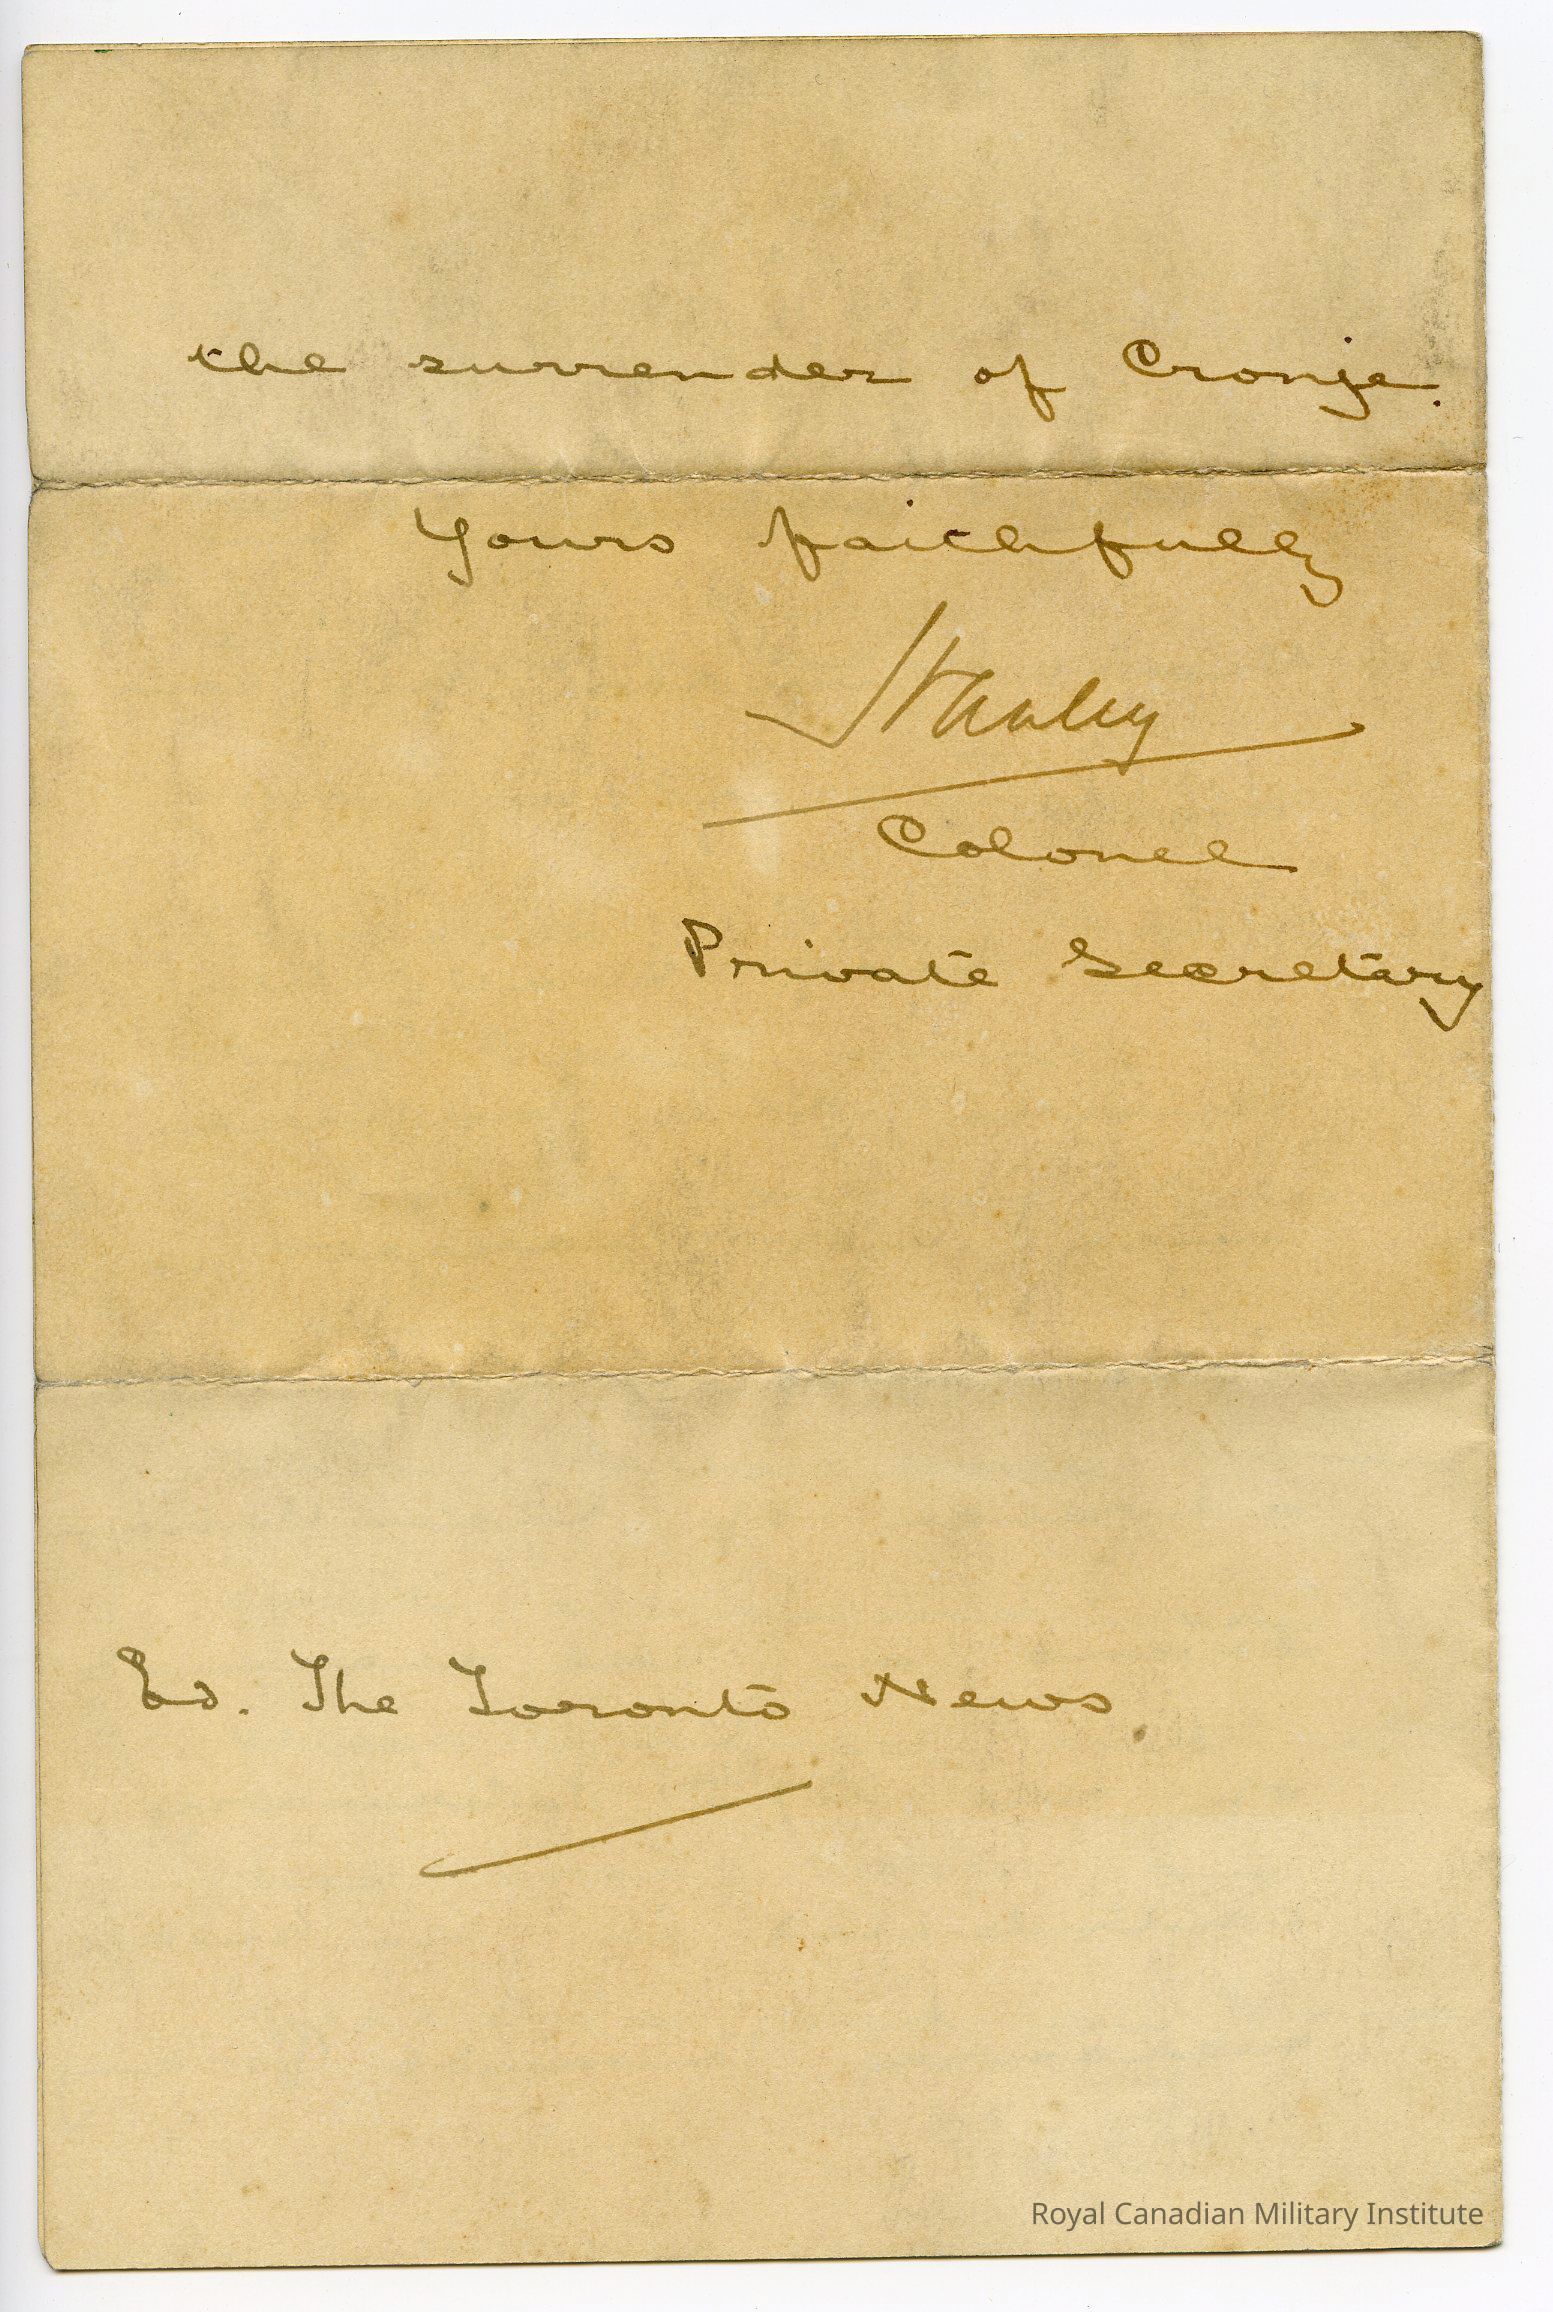 the surrender of Cronje.
Yours faithfully
Stanley
Colonel
Private Secretary
Ed. The Toronto News.
Royal Canadian Military Institute